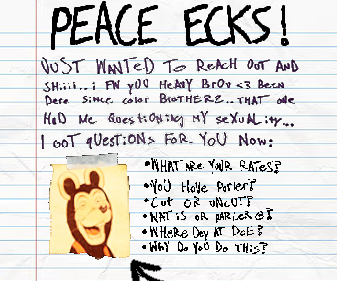 PEACE ECKS!
JUST WANTED TO REACH OUT AND
SHiii...i FW YOU HEAVY BROV <3 BEEN
Dere Since color BROTHERZ..THAT one
HAD Me Questioning MY seXUALity...
I GOT QUESTIONS FOR YOU NOW:
•WHAT ARE YOUR RATES?
•YOU HAVE Parler?
•CUT OR UNCUT?
•WAT iS Or PARLER @?
•WHERE DEY AT DOE?
•WHY DO YOU DO THIS?